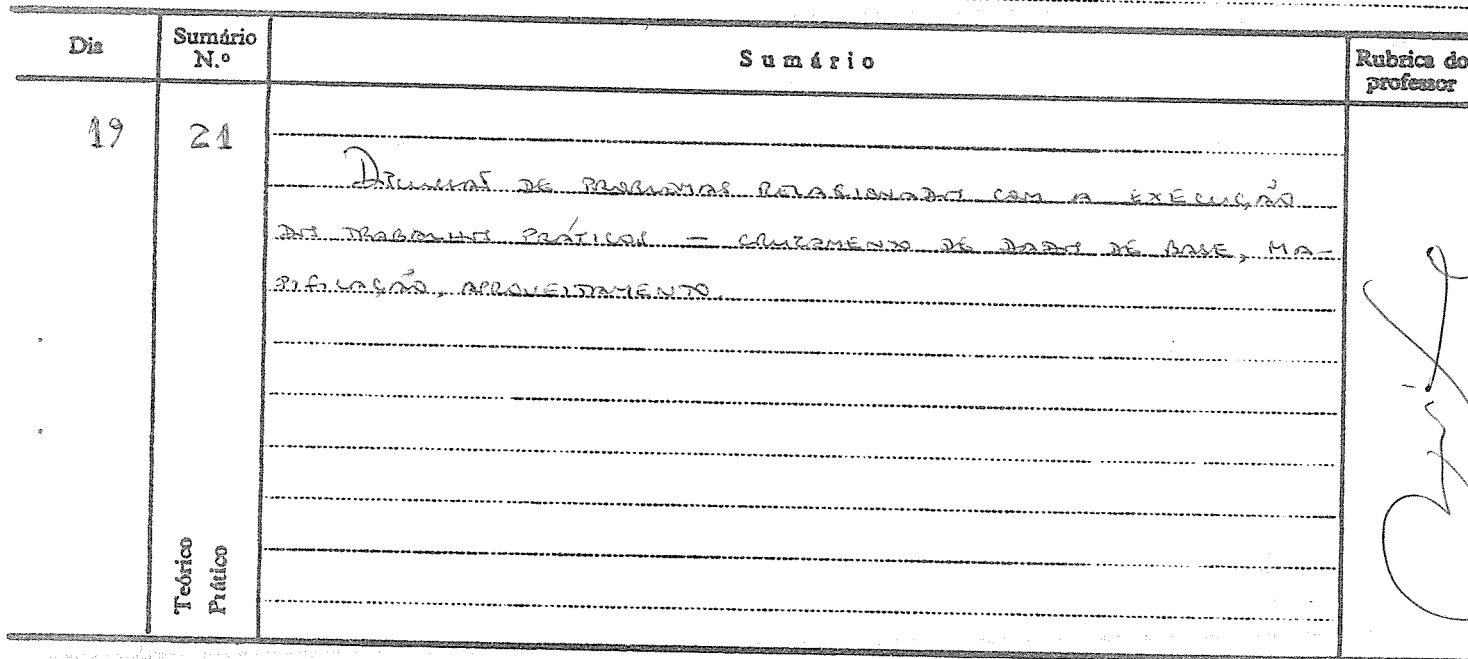 Dia
Sumário N.º
Sumário
Rubrica do professor
19
21
Discussão de problemas relacionados com a execução
dos trabalhos práticos — cruzamento de dados de base, ma-
pificação, aproveitamento.
Teórico
Prático